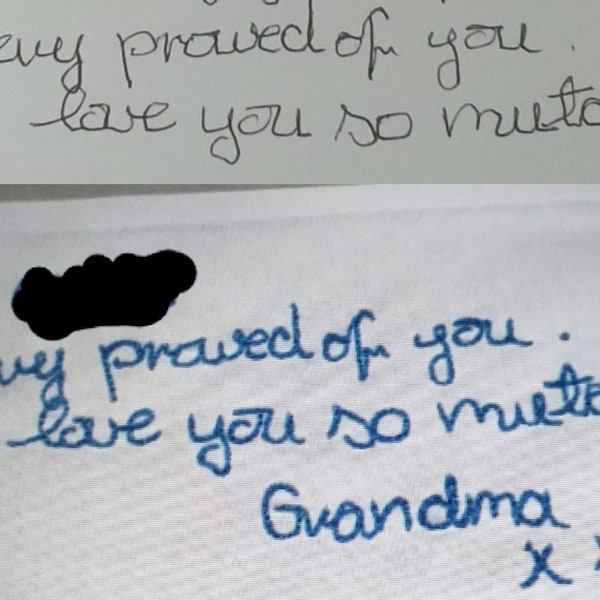 evy prowed of you.
love you so mutc
vy prowed of you.
love you so mutc
Grandma
x x